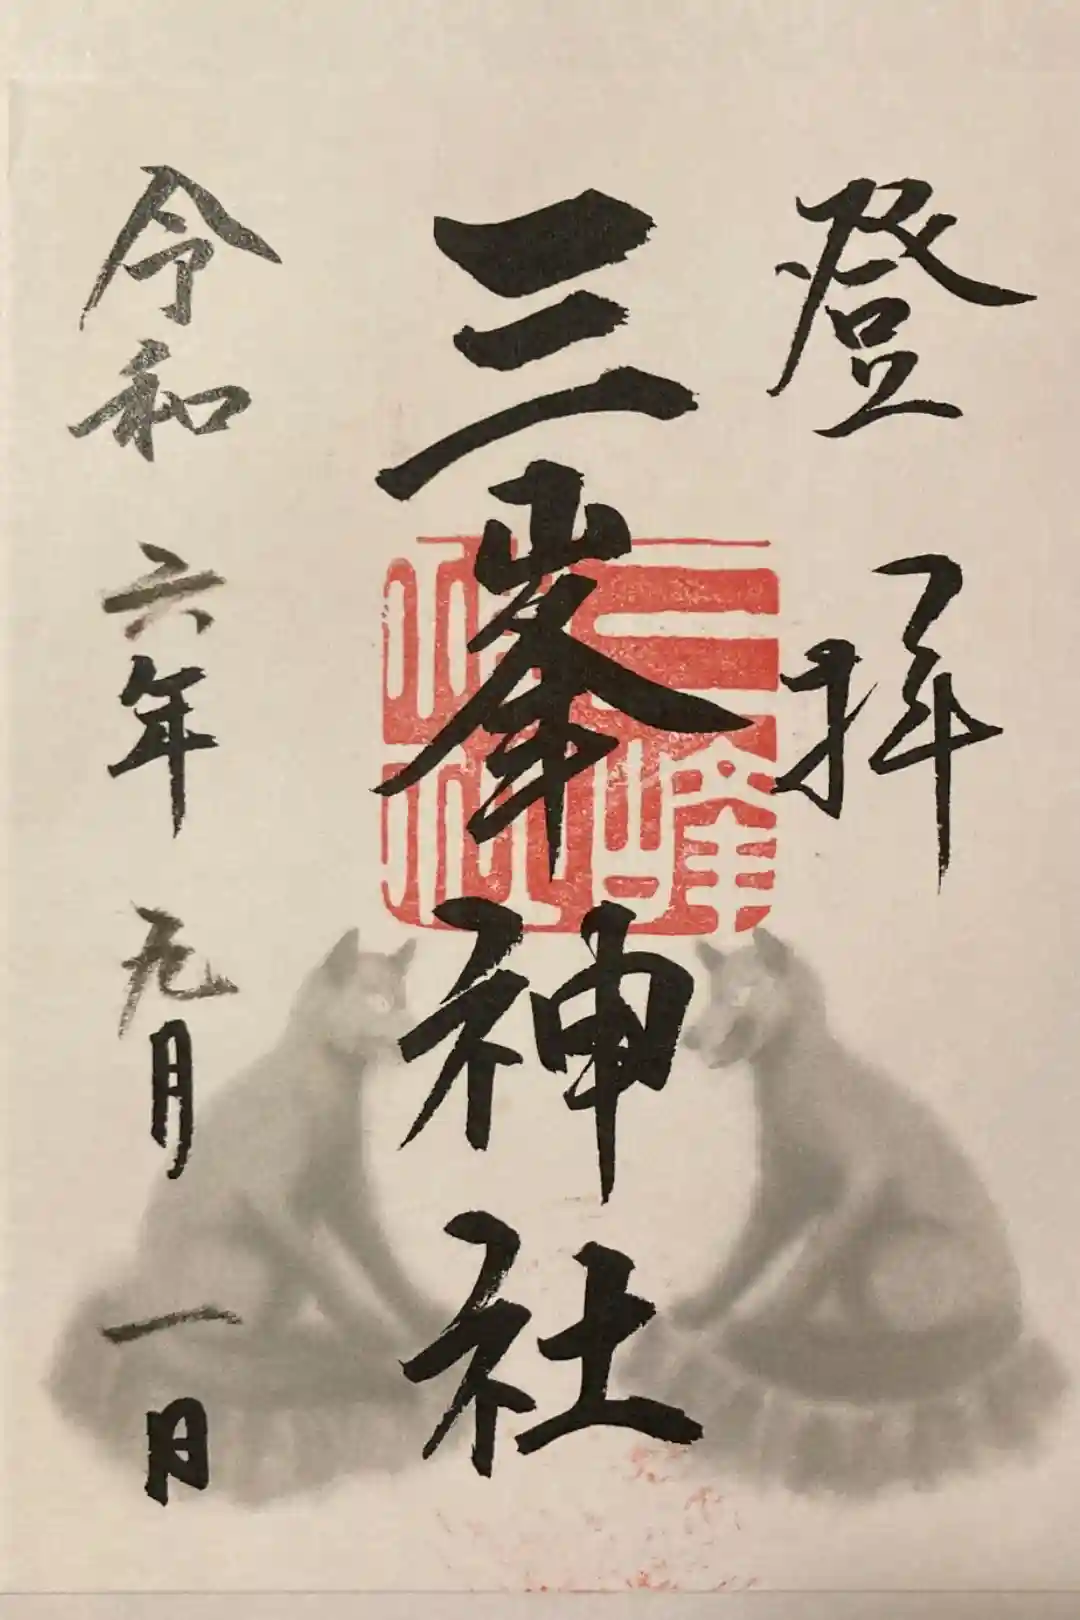 登拝
三峯神社
三峰神社
令和六年九月一日